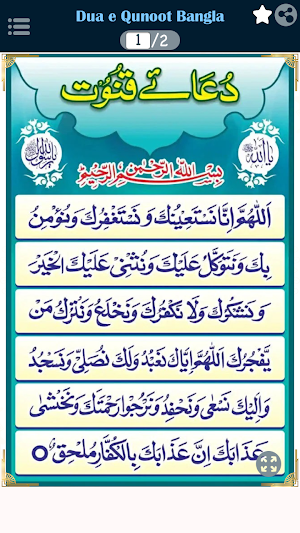 Dua e Qunoot Bangla
1/2
دُعائے قنُوت
یااللہ
یارسول اللہ
بِسْمِ اللّٰهِ الرَّحْمٰنِ الرَّحِيْمِ
اَللّٰهُمَّ اِنَّا نَسْتَعِيْنُكَ وَنَسْتَغْفِرُكَ وَنُؤْمِنُ
بِكَ وَنَتَوَكَّلُ عَلَيْكَ وَنُثْنِیْ عَلَيْكَ الْخَيْرَ
وَنَشْكُرُكَ وَلَا نَكْفُرُكَ وَنَخْلَعُ وَنَتْرُكُ مَنْ
يَّفْجُرُكَ اَللّٰهُمَّ اِيَّاكَ نَعْبُدُ وَلَكَ نُصَلِّیْ وَنَسْجُدُ
وَاِلَيْكَ نَسْعٰی وَنَحْفِدُ وَنَرْجُوْا رَحْمَتَكَ وَنَخْشٰی
عَذَابَكَ اِنَّ عَذَابَكَ بِالْكُفَّارِ مُلْحِقٌ